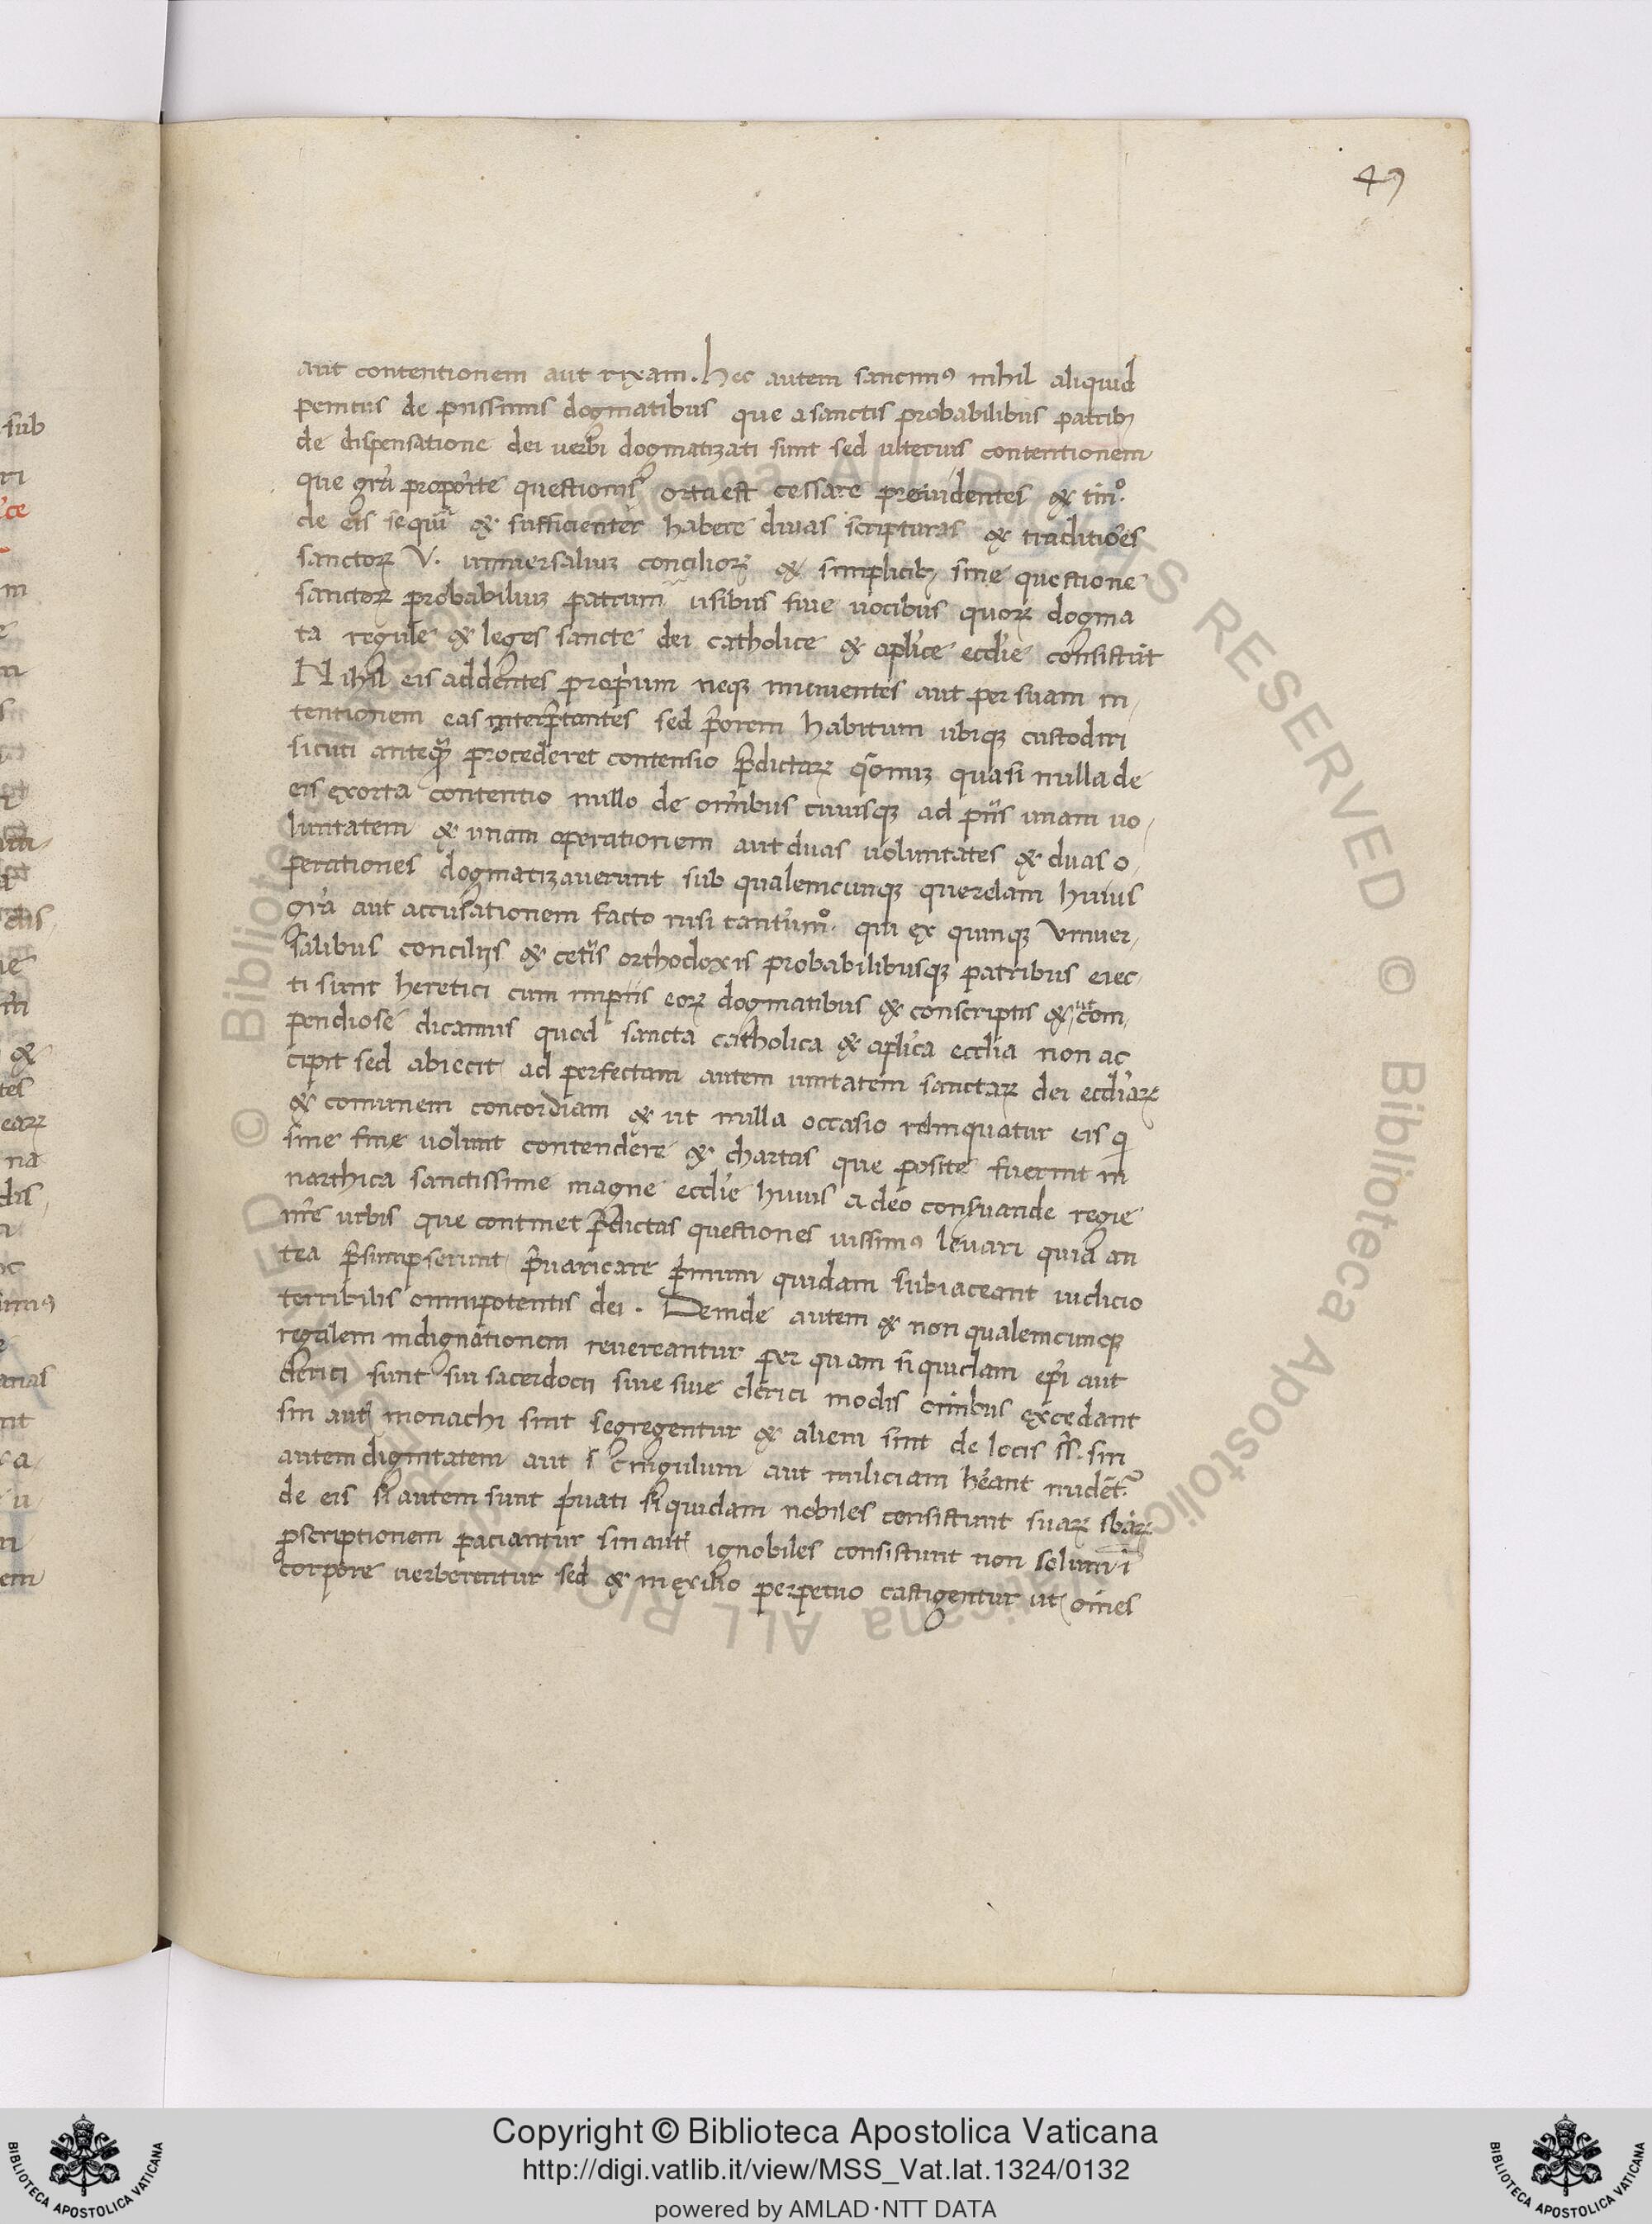 49
aut contentionem aut rixam. hec autem sancimꝰ nihil aliquid
penitus de piissimis dogmatibus que a sanctis probabilibus patribꝫ
de dispensatione dei uerbi dogmatizati sunt sed ulterius contentionem
que grã proposite questionis orta est cessare preuidentes & tm̃º.
de eis sequi & sufficienter habere diuas scripturas & traditiões
sanctoꝝ V. uniuersaliuꝫ concilioꝝ & simplicibꝫ sine questione
sanctoꝝ probabiliuꝫ patrum usibus siue uocibus quoꝝ dogma
ta regule & leges sancte dei catholice & aplĩce ecclĩe consistũt
Nihil eis addentes proprium neqꝫ minuentes aut per suam in
tentionem eas interp̃tantes sed p̃orem habitum ubiqꝫ custodiri
sicuti anteqꝫ procederet contensio p̃dictaꝝ q̃onuꝫ quasi nulla de
eis exorta contentio nullo de omĩbus cuiusqꝫ ad p̃iis unam uo
luntatem & unam operationem aut duas uoluntates & duas o
perationes dogmatizauerunt sub qualemcunqꝫ querelam huius
grã aut accusationem facto nisi tantumº. qui ex quinqꝫ vniuer
salibus conciliis & cet̃is orthodoxis probabilibusqꝫ patribus eiec
ti sunt heretici cum impiis eoꝝ dogmatibus & conscriptis & ut com
pendiose dicamus quod sancta catholica & aplĩca ecclĩa non ac
cipit sed abiecit ad perfectam autem unitatem sanctaꝝ dei ecclĩaꝝ
& comunem concordiam & ut nulla occasio relinquatur eis qi
sine fine uolunt contendere & chartas que posite fuerint in
narthica sanctissime magne ecclĩe huius a deo conseruande regie
nr̃e urbis que continet p̃dictas questiones iussimꝰ leuari quia an
tea p̃sumpserunt p̃uaricare p̃mum quidam subiaceant iudicio
terribilis omnipotentis dei. Deinde autem & non qualemcunqꝫ
regalem indignationem reuereantur per quam si quidam ep̃i aut
clerici sunt sui sacerdocii siue siue clerici modis omĩbus excedant
sin aut̃ monachi sint segregentur & alieni sint de locis sĩs. sin
autem dignitatem aut ĩ cingulum aut miliciam hẽant nudẽt̃.
de eis si autem sunt p̃uati si quidam nobiles consistunt suaꝝ sb̃aꝝ
ꝑscriptionem paciantur sin aut̃ ignobiles consistunt non solum ĩ
corpore uerberentur sed & in exilio perpetuo castigentur ut omẽs
Copyright © Biblioteca Apostolica Vaticana
http://digi.vatlib.it/view/MSS_Vat.lat.1324/0132
powered by AMLAD·NTT DATA
BIBLIOTECA APOSTOLICA VATICANA
BIBLIOTECA APOSTOLICA VATICANA